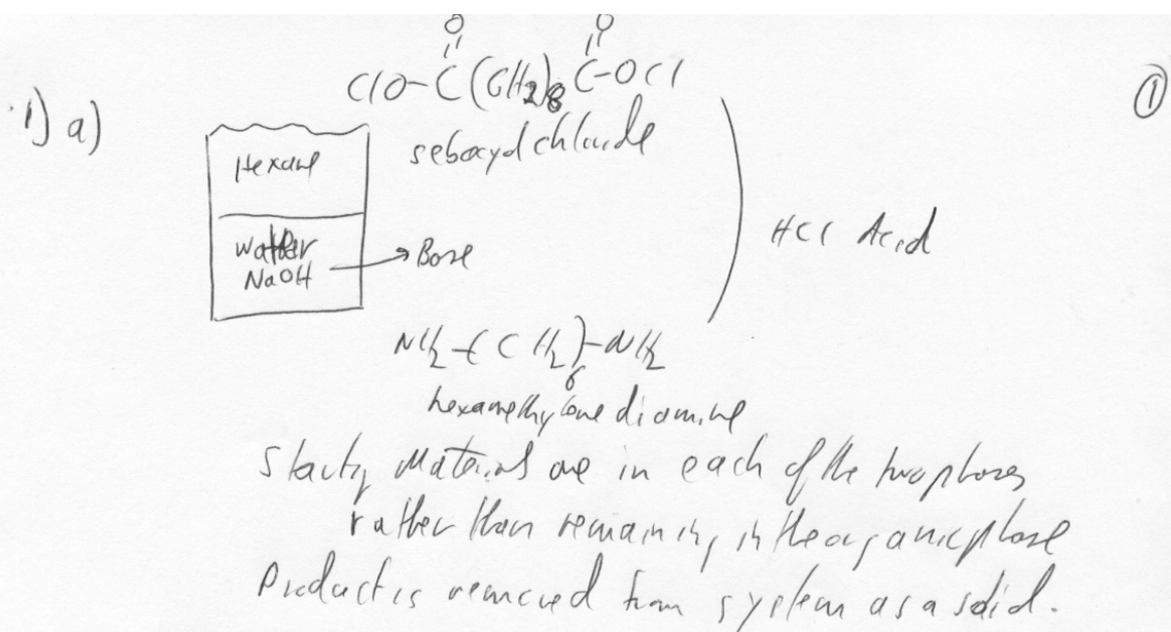 ①
1) a)
O O
ClO-C(CH2)8C-OCl
seboxyd chloride
Hexane
water
NaOH → Base
HCl Acid
NH2-(CH2)6-NH2
hexamethylene diamine
Starting Materials are in each of the two phases
rather than remaining in the organic phase
Product is removed from system as a solid.